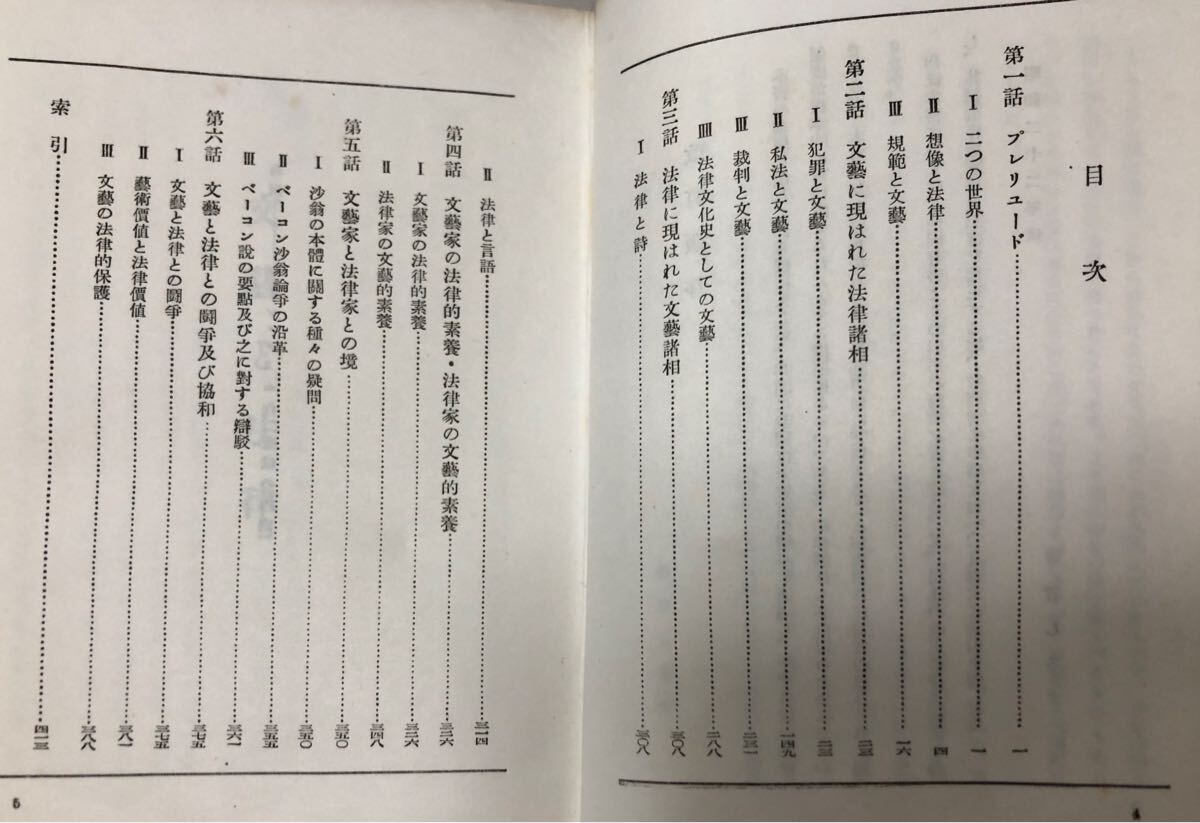 目次
第一話 プレリュード……一
Ⅰ 二つの世界……一
Ⅱ 想像と法律……四
Ⅲ 規範と文藝……一六
第二話 文藝に現はれた法律諸相……二三
Ⅰ 犯罪と文藝……二三
Ⅱ 私法と文藝……一四九
Ⅲ 裁判と文藝……二三一
IIII 法律文化史としての文藝……二八八
第三話 法律に現はれた文藝諸相……三〇八
Ⅰ 法律と詩……三〇八
4
Ⅱ 法律と言語……三一四
第四話 文藝家の法律的素養・法律家の文藝的素養……三二六
Ⅰ 文藝家の法律的素養……三二六
Ⅱ 法律家の文藝的素養……三四八
第五話 文藝家と法律家との境……三五〇
Ⅰ 沙翁の本體に關する種々の疑問……三五〇
Ⅱ ベーコン沙翁論爭の沿革……三五五
Ⅲ ベーコン說の要點及び之に對する辯駁……三六一
第六話 文藝と法律との鬪爭及び協和……三七五
Ⅰ 文藝と法律との鬪爭……三七五
Ⅱ 藝術價値と法律價値……三八一
Ⅲ 文藝の法律的保護……三八八
索引……四一三
5